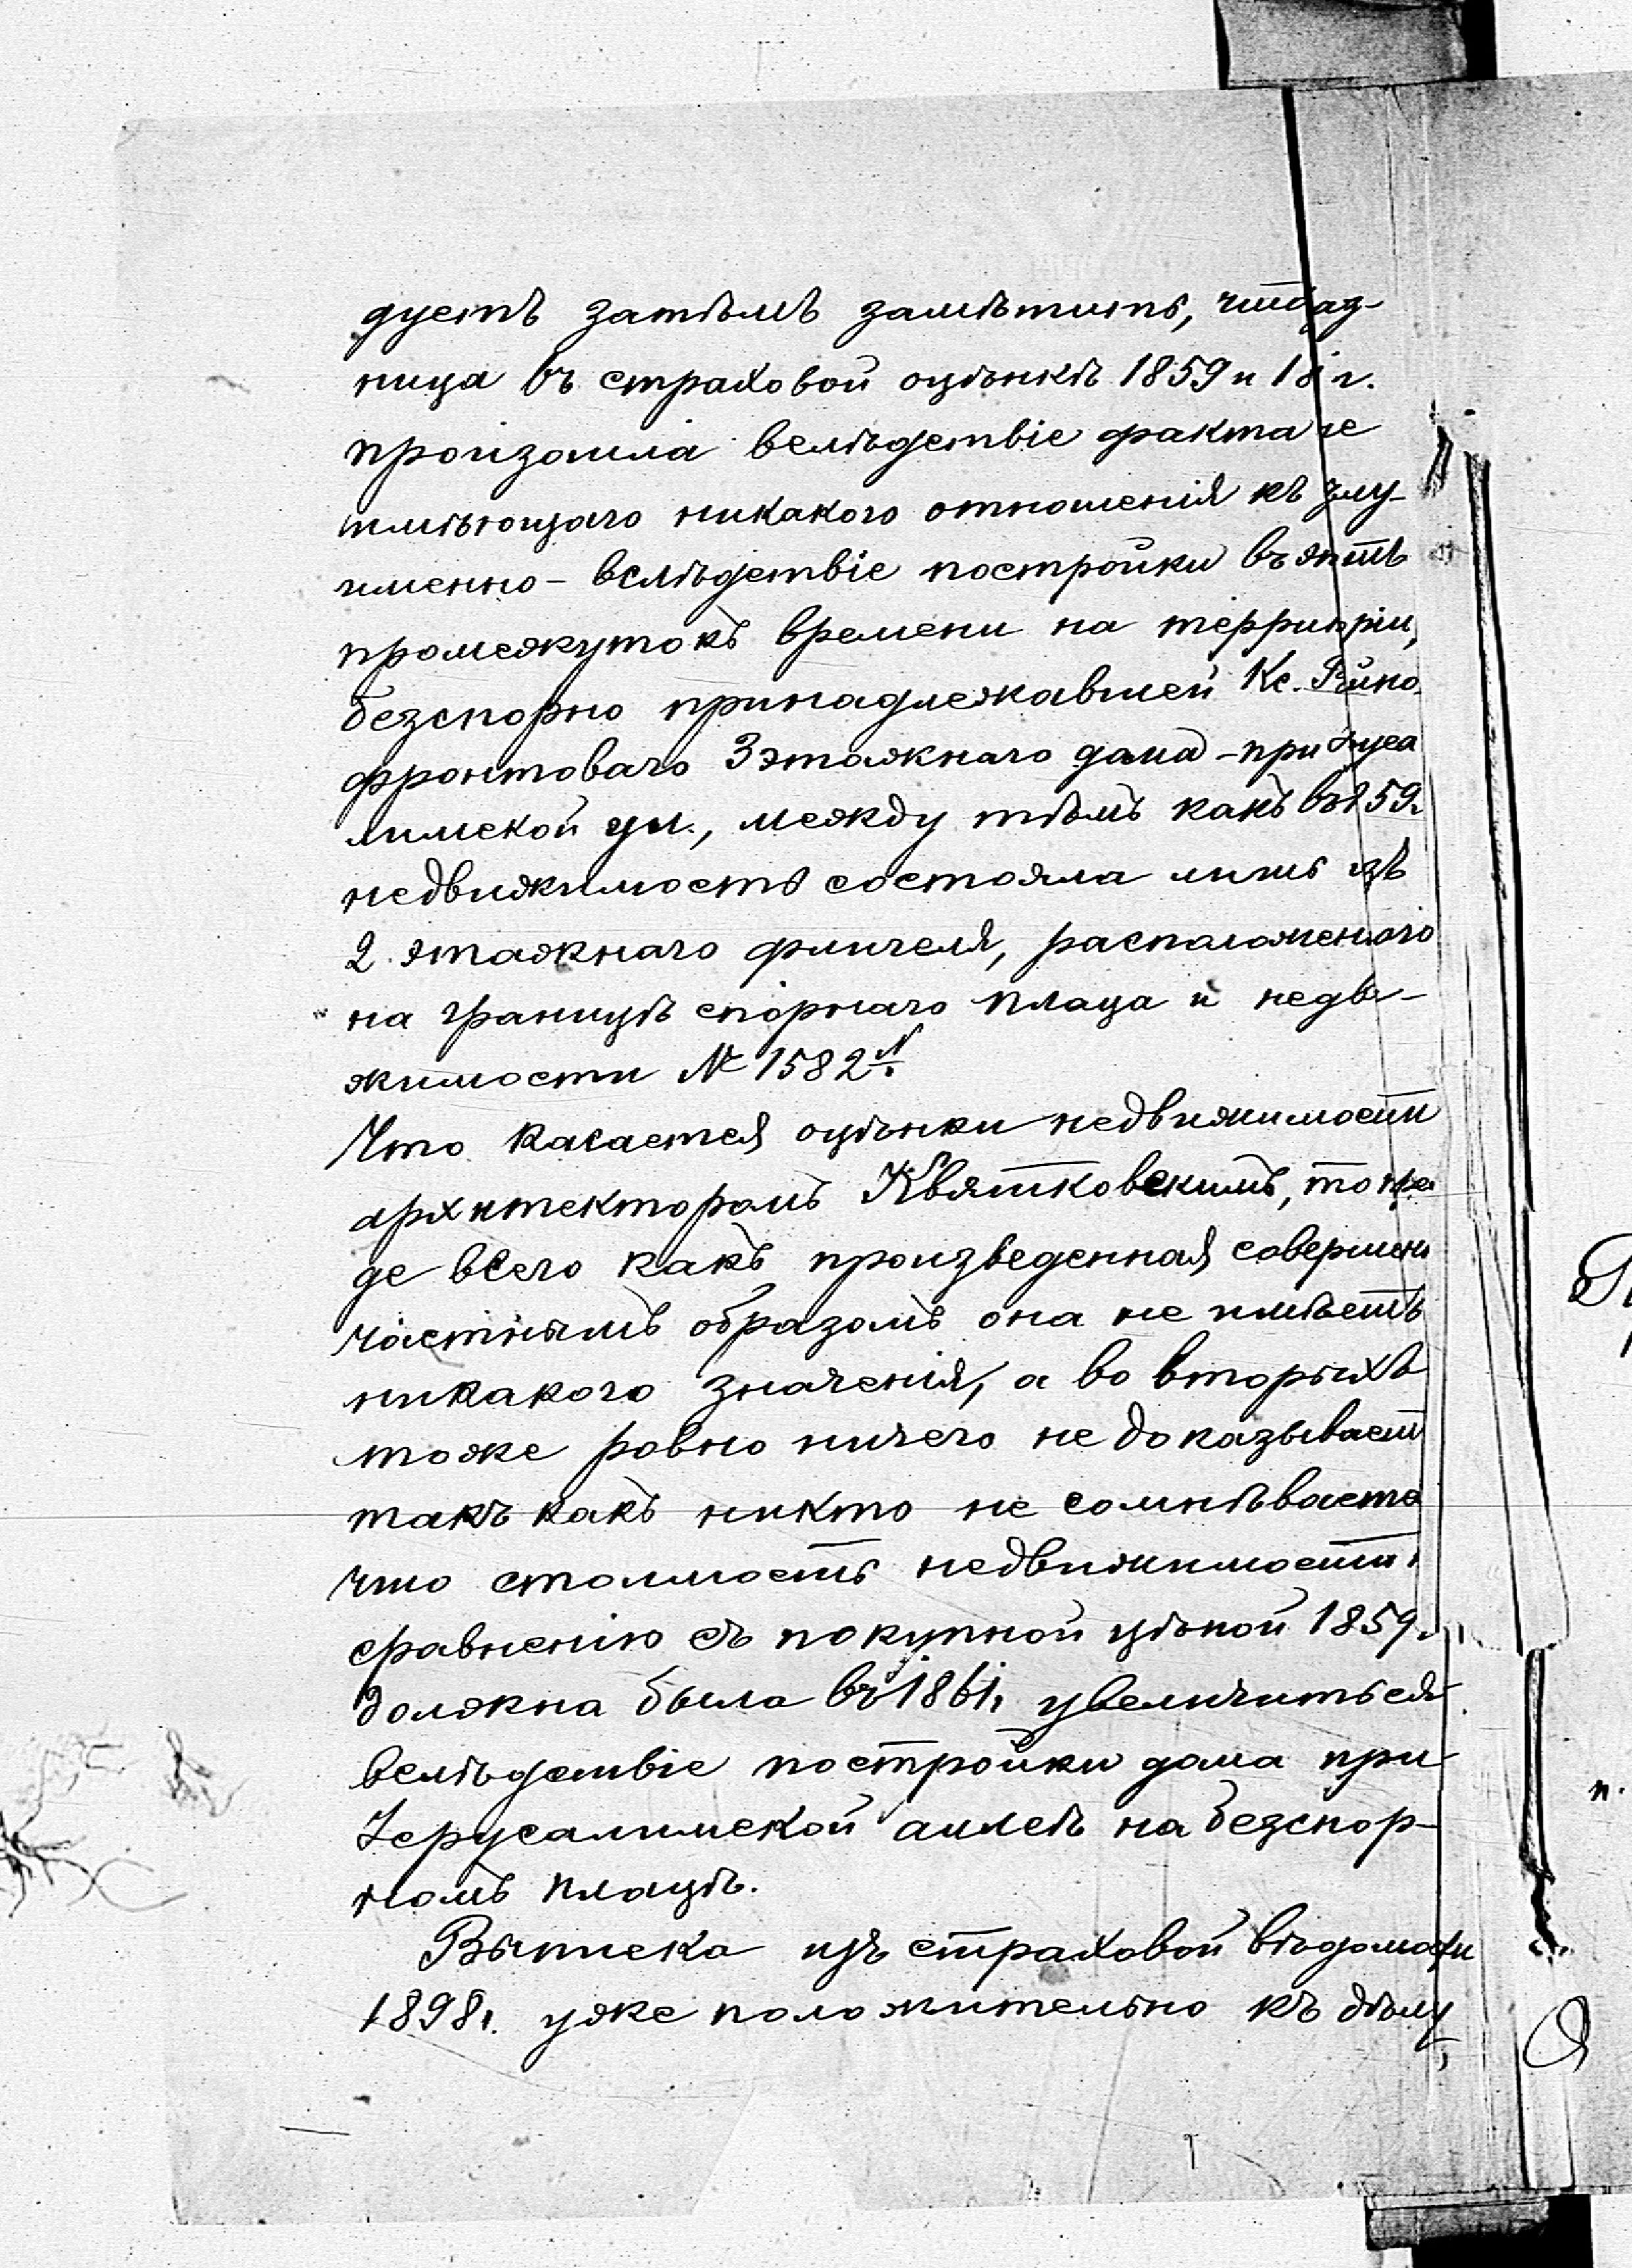 дуетъ затѣмъ замѣтить, что раз-
ница въ страховой оцѣнкѣ 1859 и 18 г.
произошла вслѣдствіе факта не
имѣющаго никакого отношенія къ
именно - вслѣдствіе постройки въ этотъ
промежутокъ времени на территоріи,
безспорно принадлежавшей Кс.
фронтоваго 3 этажнаго дома - при
лимской ул., между тѣмъ какъ въ 1859г.
недвижимость состояла лишь изъ
2 этажнаго флигеля, расположеннаго
на границѣ спорнаго плаца и недви-
жимости № 1582 N.
Что касается оцѣнки недвижимости
архитекторомъ Квятковскимъ, то преж
де всего какъ произведенная совершенно
частнымъ образомъ она не имѣетъ
никакого значенія, а во вторыхъ
тоже ровно ничего не доказываетъ
такъ какъ никто не сомнѣвается
что стоимость недвижимости
сравненію съ покупной цѣной 1859г.
должна была въ 1861г. увеличиться
вслѣдствіе постройки дома при
Іерусалимской аллеѣ на безспор-
номъ плацѣ.
Выписка изъ страховой вѣдомости
1898г. уже положительно къ дѣлу